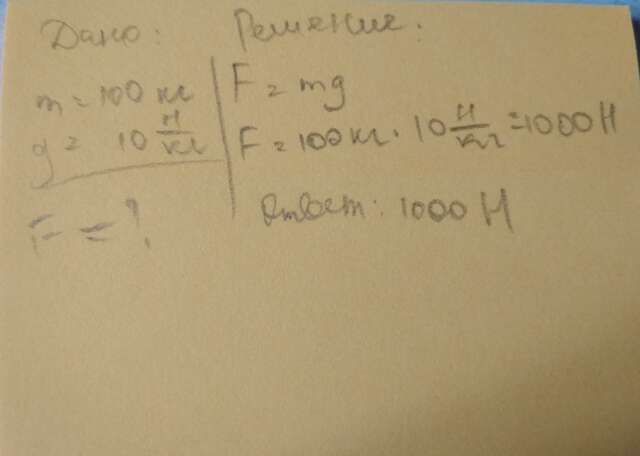 Дано:
m = 100 кг
g = 10 Н/кг
F = ?
Решение:
F = mg
F = 100 кг · 10 Н/кг = 1000 Н
Ответ: 1000 Н